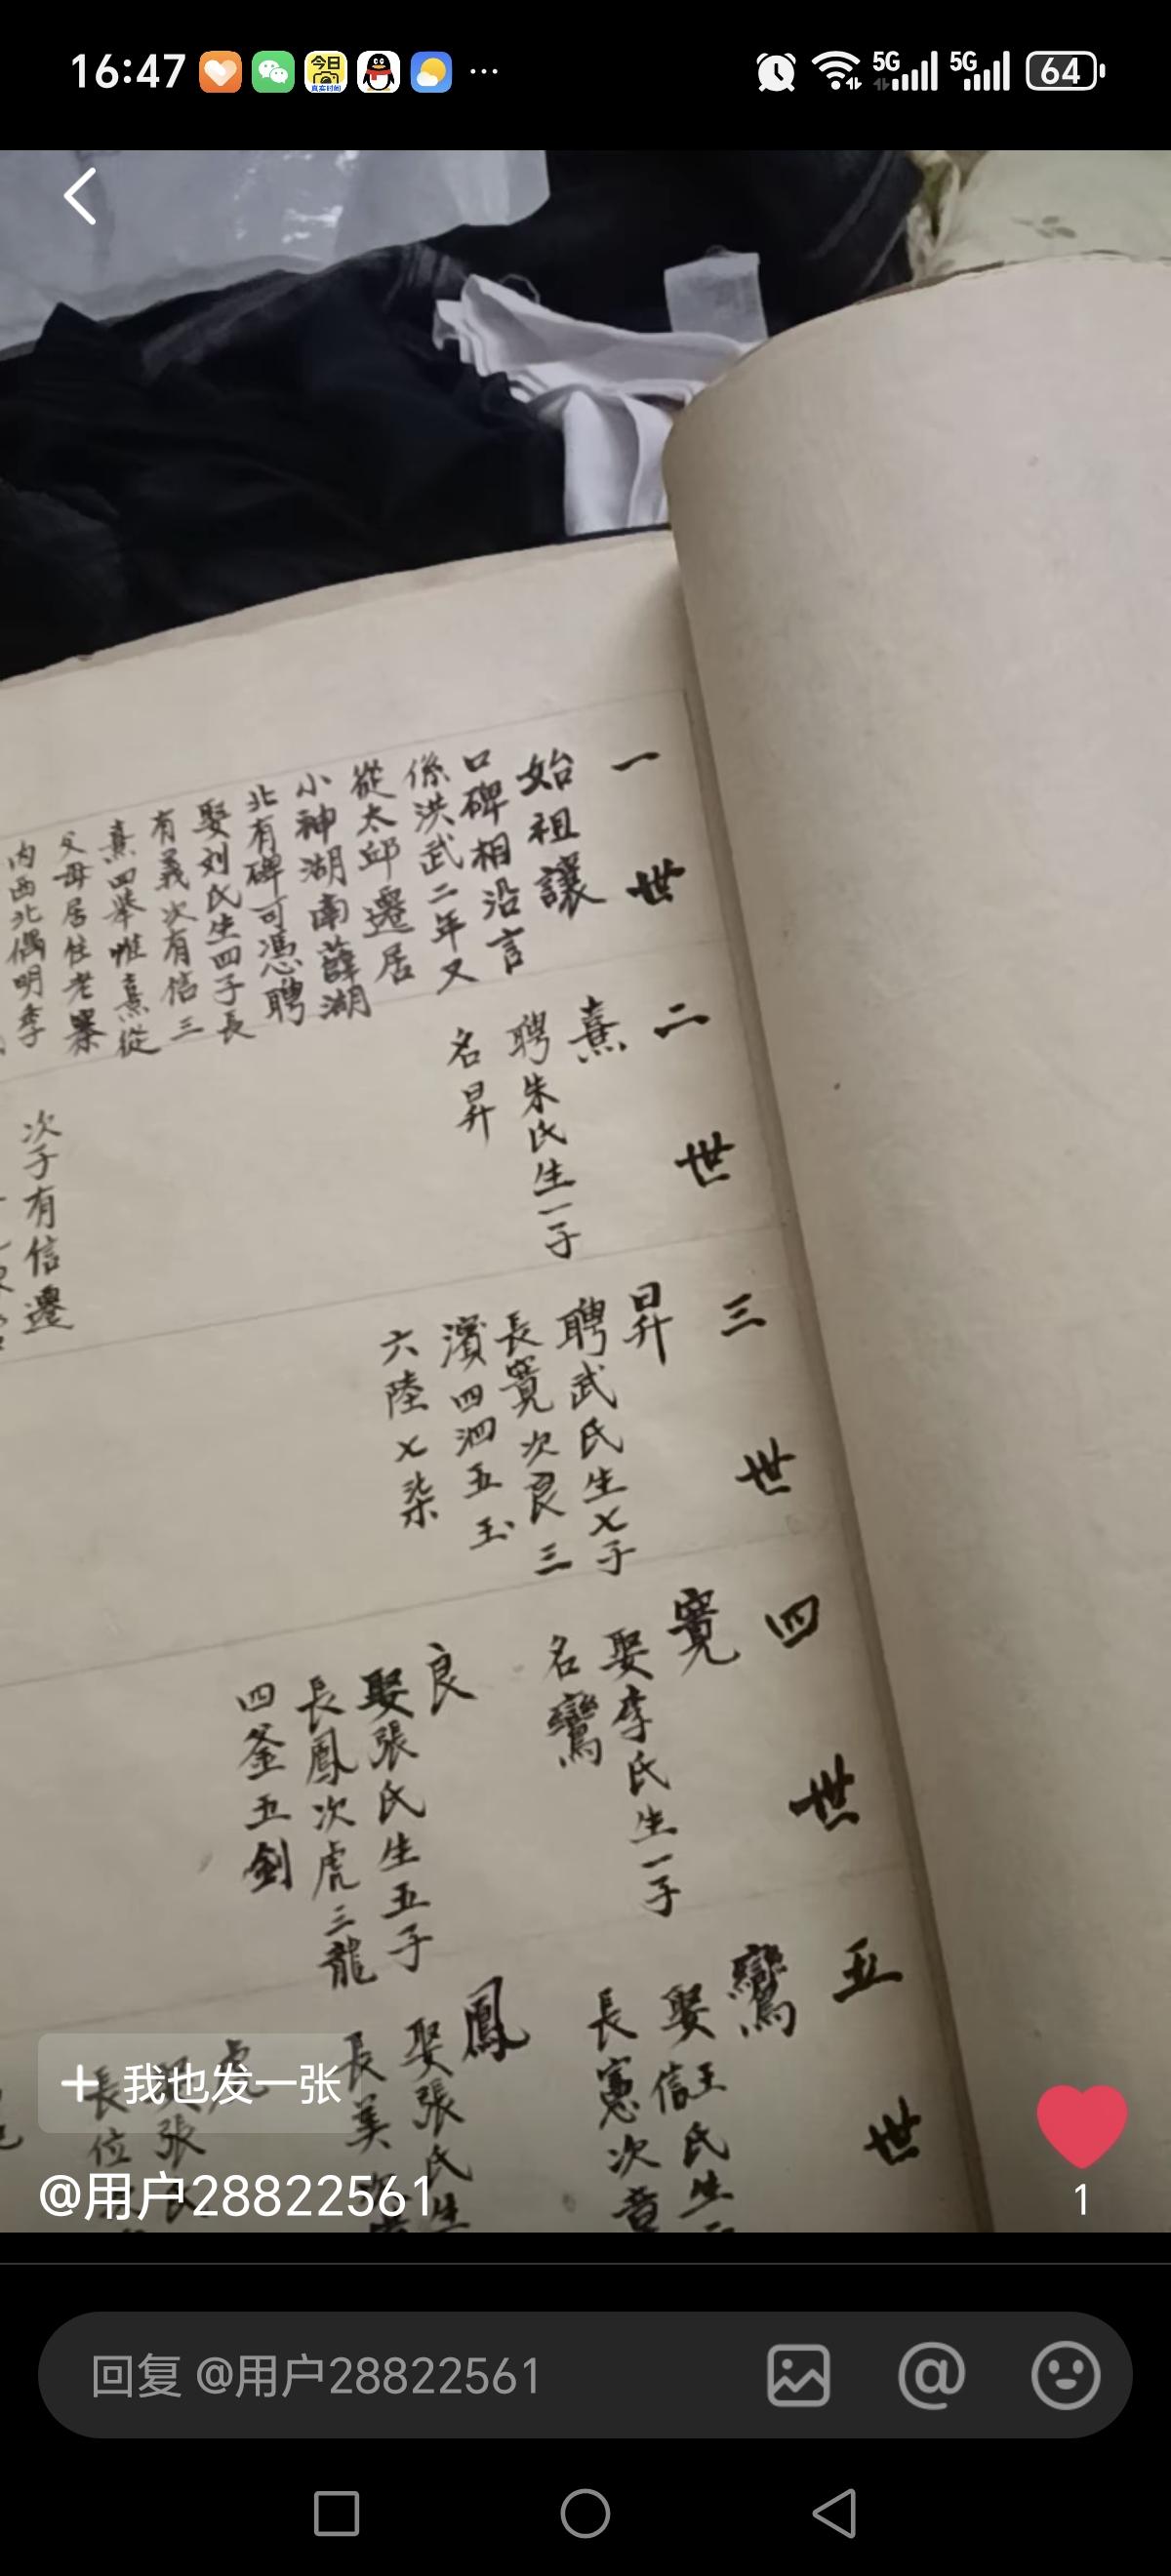 16:47
今日
真实时间
5G
5G
64
一世
始祖讓
口碑相沿言
係洪武二年又
從太邱遷居
小神湖南薛湖
北有碑可憑聘
娶刘氏生四子長
有義次有信三
熹四舉惟熹從
父母居住老寨
内西北偶明季
二世
熹
聘朱氏生一子
名昇
次子有信遷
三世
昇
聘武氏生七子
長寛次良三
濱四泗五玉
六陸七柒
四世
寛
娶李氏生一子
名鸞
良
娶張氏生五子
長鳳次虎三龍
四釜五劍
五世
鸞
娶信王氏生二
長憲次章
鳳
娶張氏生
長美
虎
張
長位
我也发一张
@用户28822561
1
回复 @用户28822561